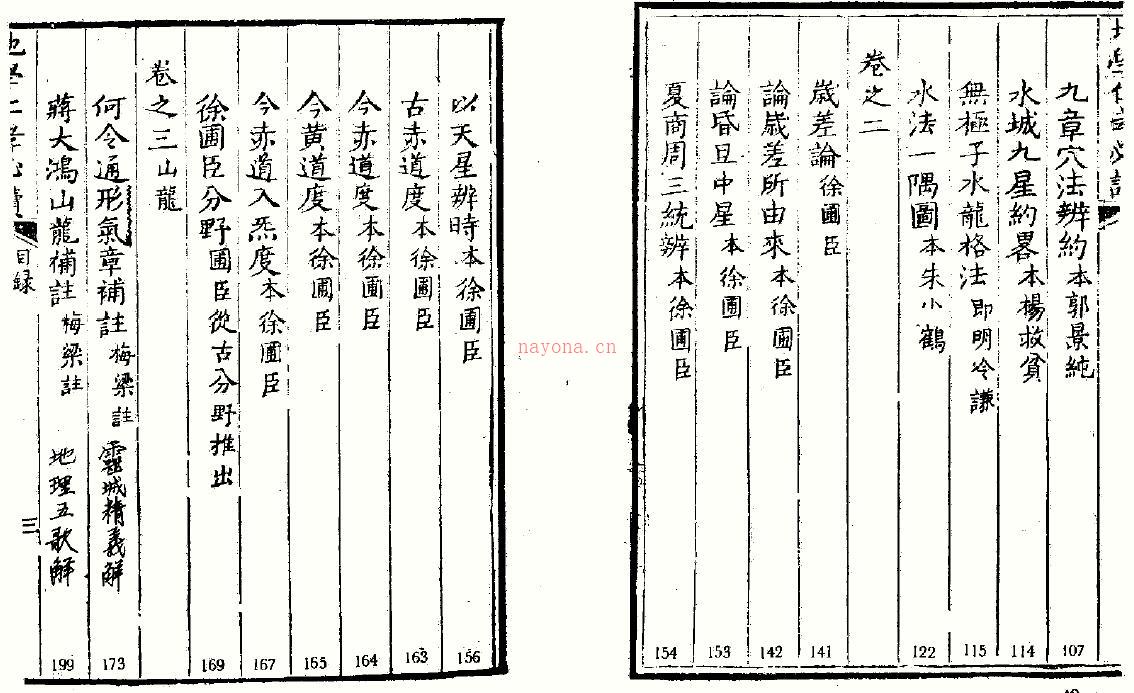 九章穴法辨約 本郭景純 107
水城九星約畧 本楊救貧 114
無極子水龍格法 即明冷謙 115
水法一隅圖 本朱小鶴 122
卷之二
歲差論 徐圃臣 141
論歲差所由來 本徐圃臣 142
論昏旦中星 本徐圃臣 153
夏商周三統辨 本徐圃臣 154
以天星辨時 本徐圃臣 156
古赤道度 本徐圃臣 163
今赤道度 本徐圃臣 164
今黄道度 本徐圃臣 165
今赤道入炁度 本徐圃臣 167
徐圃臣分野 圃臣從古分野推出 169
卷之三 山龍
何令通形氣章補註 梅梁註 靈城精義解 173
蔣大鴻山龍補註 梅梁註 地理五歌解 199
目録
三
nayona.cn